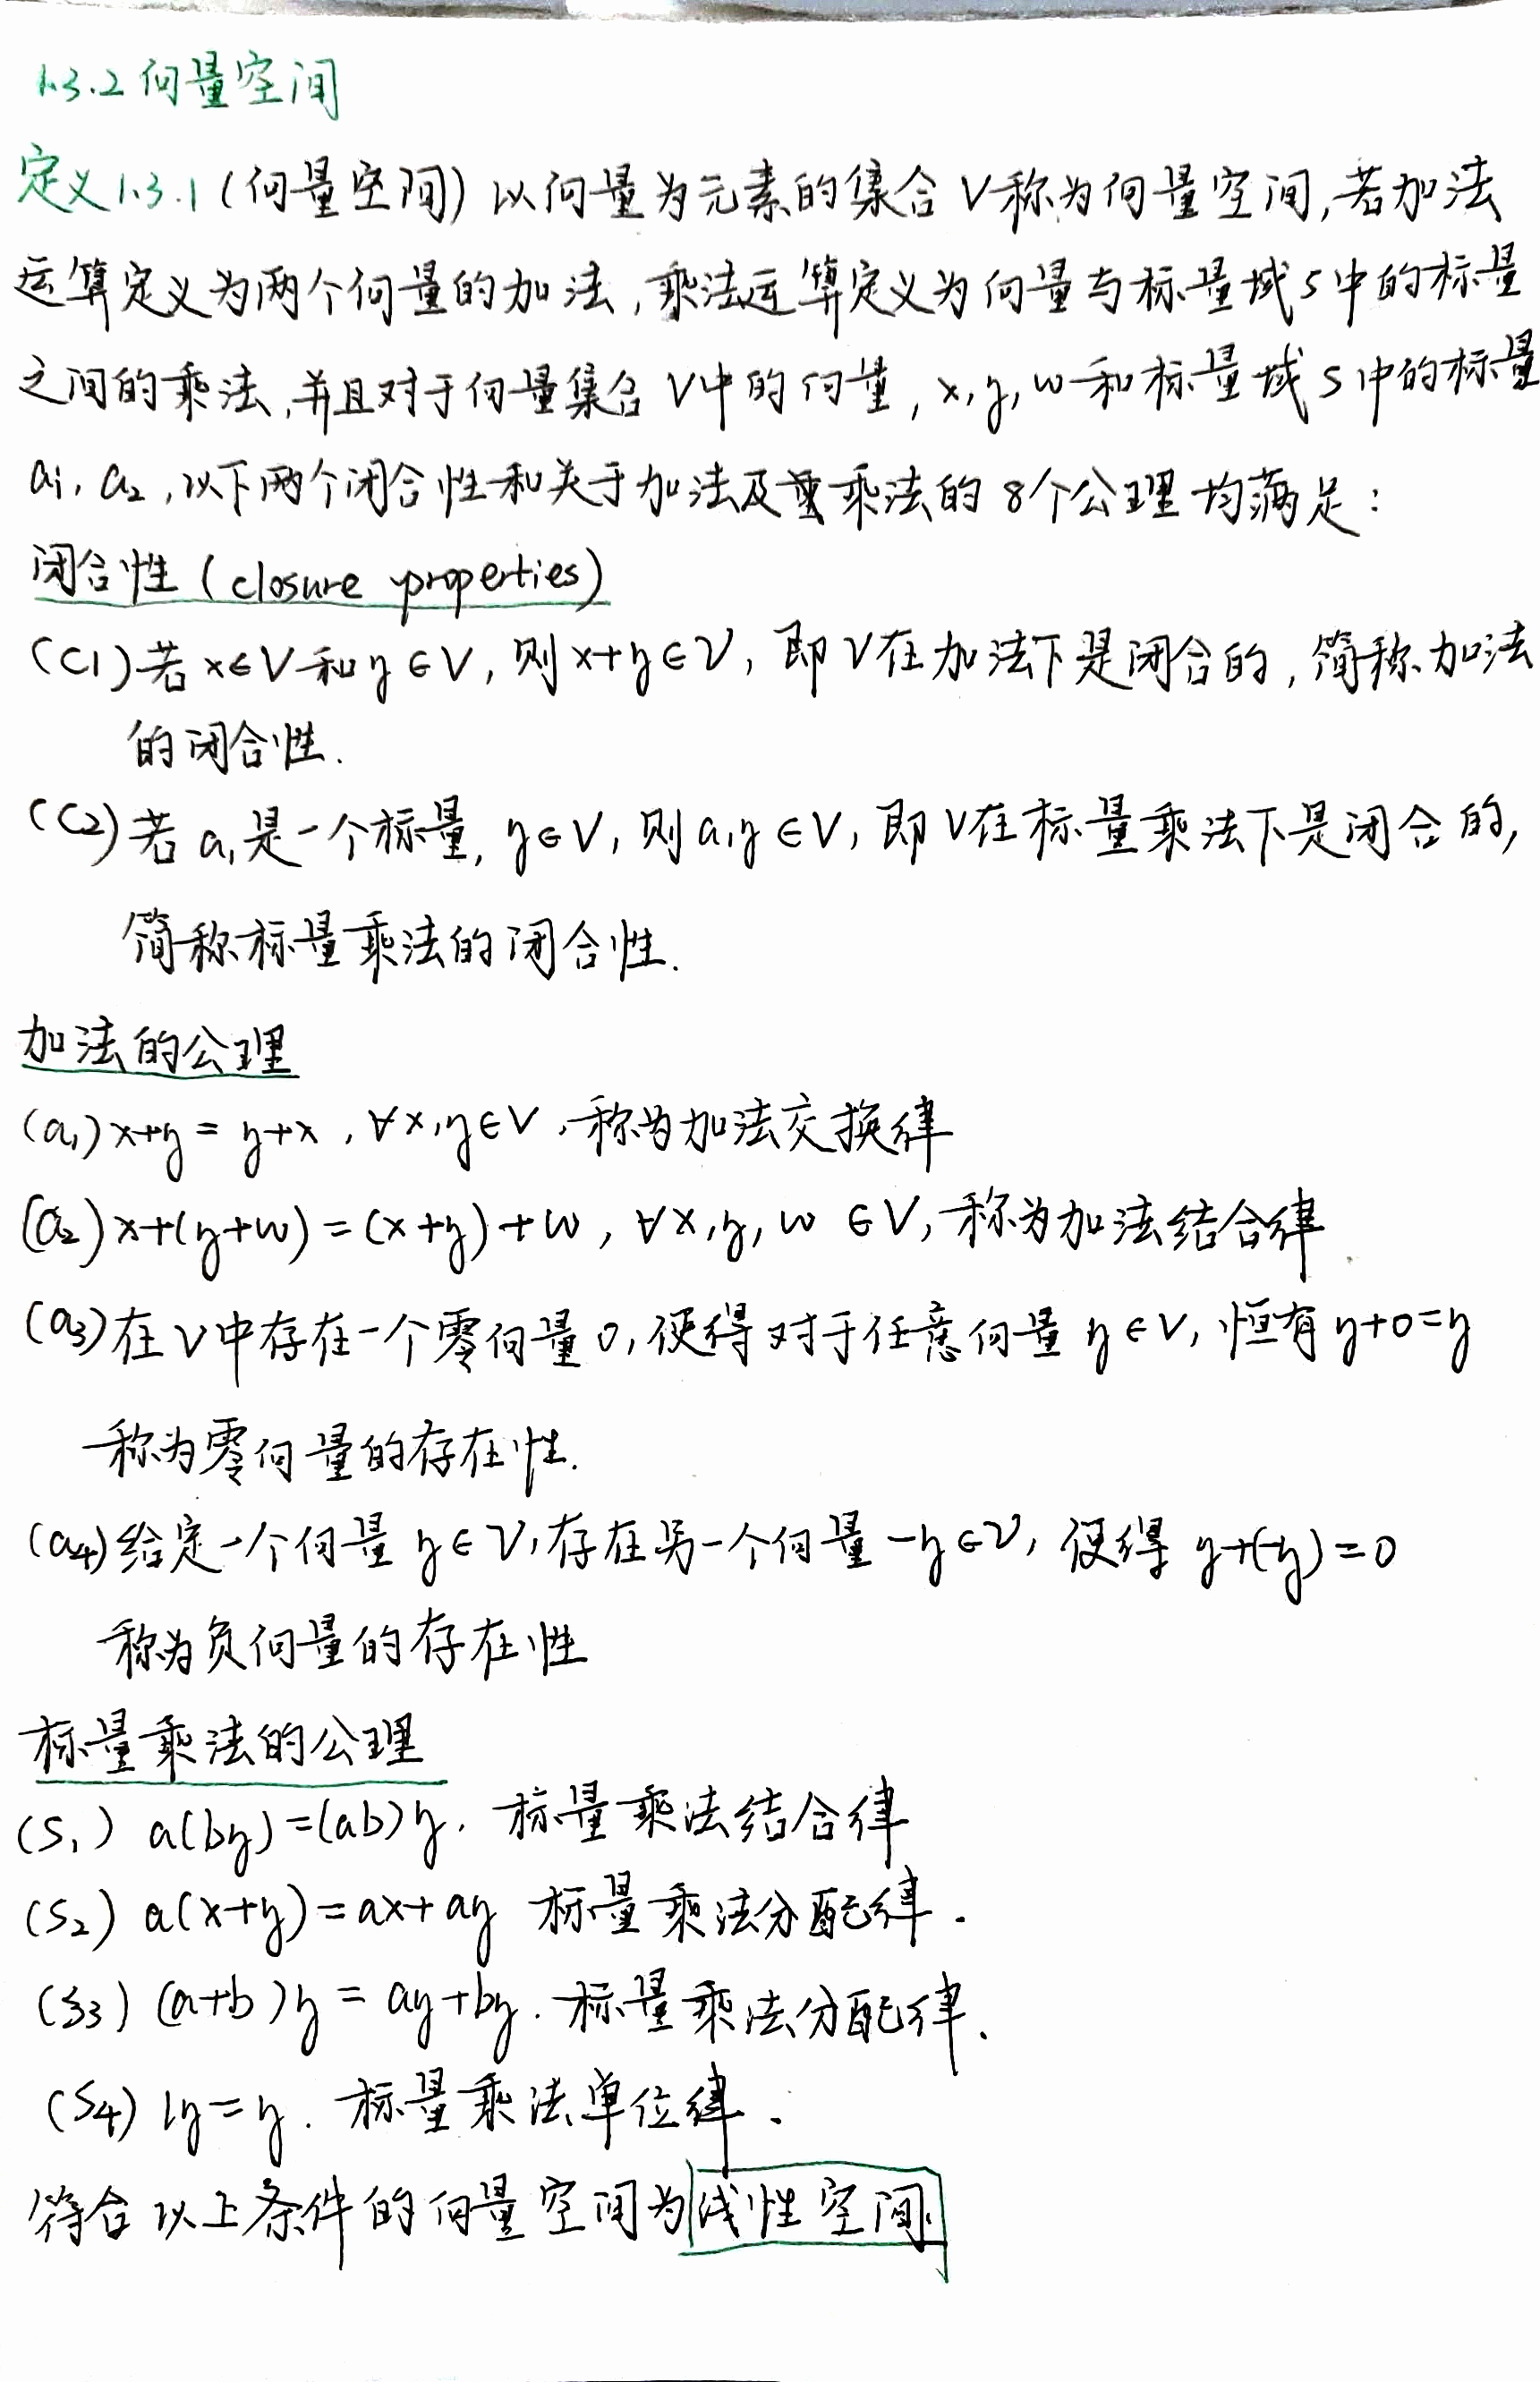 1.3.2 向量空间
定义1.3.1 (向量空间) 以向量为元素的集合 V称为向量空间,若加法
运算定义为两个向量的加法,乘法运算定义为向量与标量域S中的标量
之间的乘法,并且对于向量集合V中的向量, x,y,w和标量域S中的标量
a₁, a₂,以下两个闭合性和关于加法及乘法的8个公理均满足:
闭合性 (closure properties)
(C1)若 x∈V和y∈V,则x+y∈V,即V在加法下是闭合的,简称加法
的闭合性.
(C2)若 a₁是一个标量, y∈V,则a₁y∈V,即V在标量乘法下是闭合的,
简称标量乘法的闭合性.
加法的公理
(a₁) x+y = y+x , ∀x,y∈V ,称为加法交换律
(a₂) x+(y+w) = (x+y)+w , ∀x,y,w ∈V,称为加法结合律
(a₃)在V中存在一个零向量0,使得对于任意向量y∈V,恒有y+0=y
称为零向量的存在性.
(a₄)给定一个向量y∈V,存在另一个向量-y∈V,使得 y+(-y)=0
称为负向量的存在性
标量乘法的公理
(S₁) a(by)=(ab)y. 标量乘法结合律
(S₂) a(x+y)=ax+ay 标量乘法分配律.
(S₃) (a+b)y = ay+by. 标量乘法分配律.
(S₄) 1y=y. 标量乘法单位律.
符合以上条件的向量空间为线性空间.